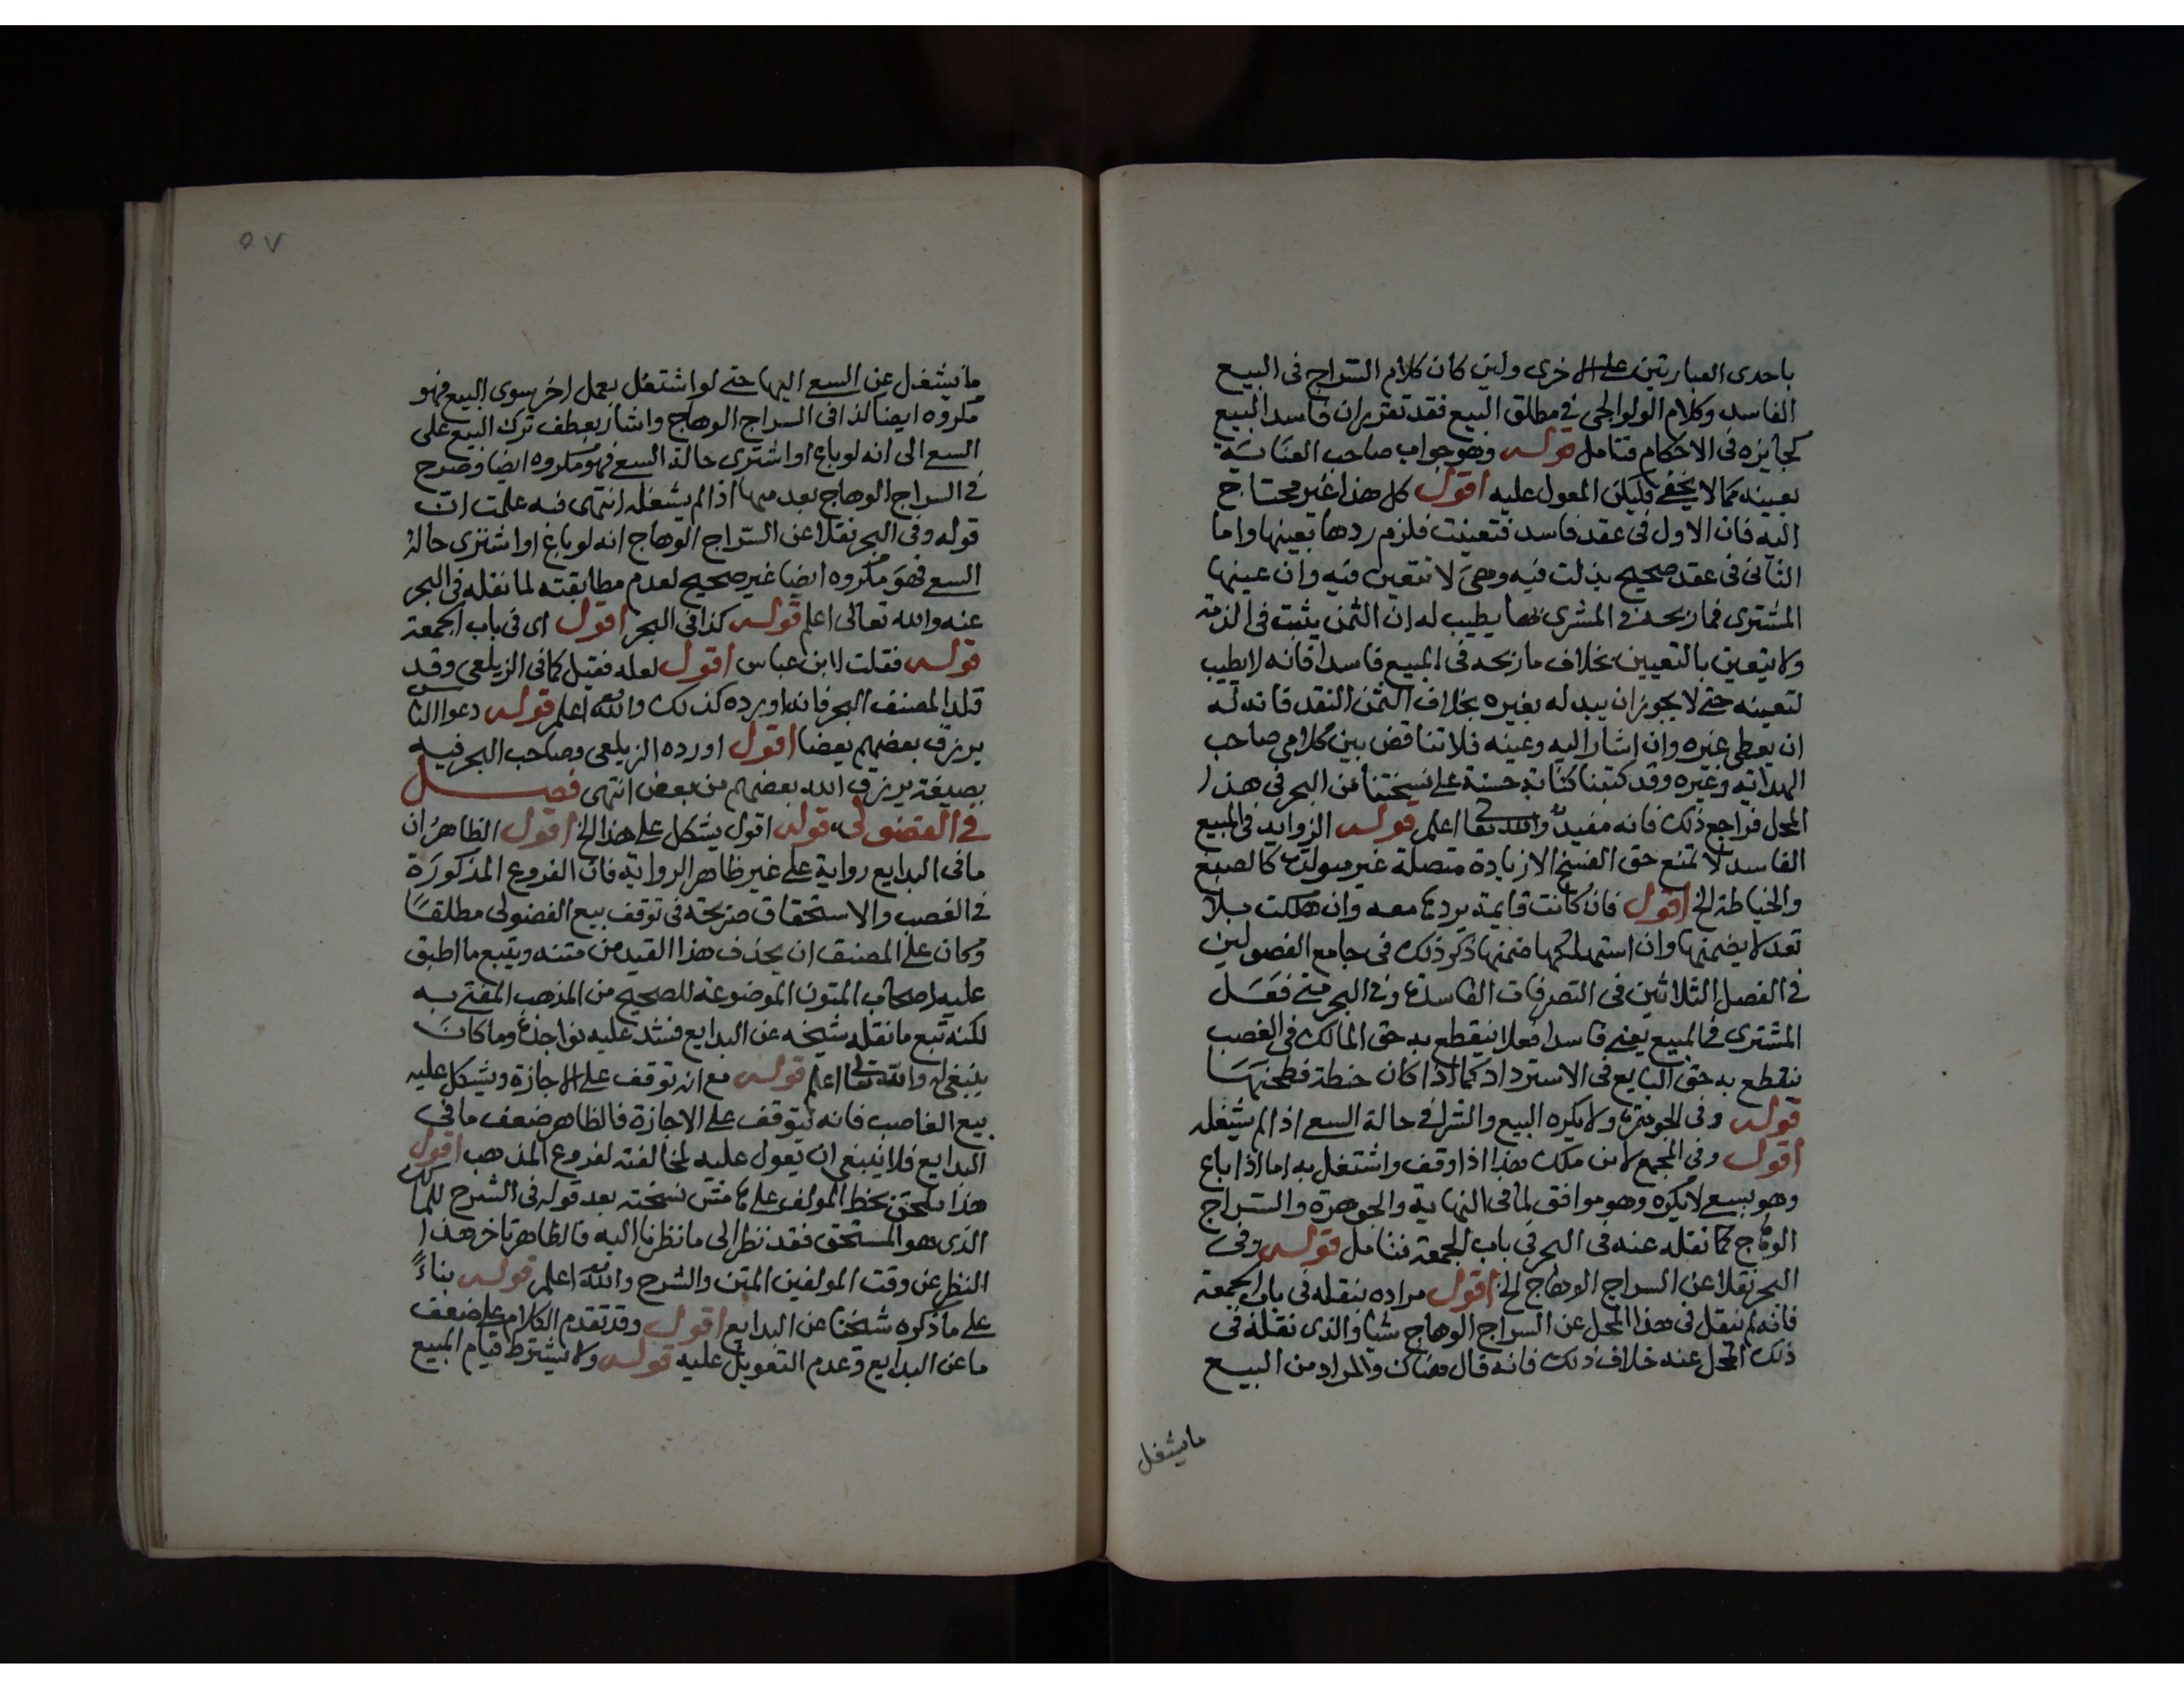 باحدى العبارتين على الاخرى ولين كان كلام السراج فى البيع
الفاسد وكلام الولوالجى فى مطلق البيع فقد تقرر ان فاسد البيع
كجايزه فى الاحكام فتامل قوله وهو جواب صاحب العناية
بعينه كما لا يخفى فليكن المعول عليه اقول كل هذا غير محتاج
اليه فان الاول فى عقد فاسد فتعينت فلزم ردها بعينها واما
الثانى فى عقد صحيح بذلت فيه وهى لا تتعين فيه وان عينها
المشترى فما ربحه فى المشرى بها يطيب له ان الثمن يثبت فى الذمة
ولا يتعين بالتعيين بخلاف ما ربحه فى المبيع فاسدا فانه لا يطيب
لتعينه حتى لا يجوز ان يبدله بغيره بخلاف الثمن النقد فانه له
ان يعطى غيره وان اشار اليه وعينه فلا تناقض بين كلامى صاحب
الهداية وغيره وقد كتبنا كتابة حسنة على نسختنا من البحر فى هذا
المحل فراجع ذلك فانه مفيد والله تعا اعلم قوله الزوايد فى المبيع
الفاسد لا تمنع حق الفسخ الا زيادة متصلة غير متولدة كالصبغ
والخياطة الخ اقول فان كانت قايمة يردها معه وان هلكت بلا
تعد لا يضمنها وان استهلكها ضمنها ذكر ذلك فى جامع الفصولين
فى الفصل الثلاثين فى التصرفات الفاسدة وفى البحر متى فعل
المشترى فى المبيع يعنى فاسدا فعلا ينقطع به حق المالك فى الغصب
ينقطع به حق البايع فى الاسترداد كما اذا كان حنطة فطحنها
قوله وفى الجوهرة ولا يكره البيع والشرا فى حالة السع اذا لم يشغله
اقول وفى المجمع لابن ملك هذا اذا وقف واشتغل به اما اذا باع
وهو يسع لا يكره وهو موافق لما فى النهاية والجوهرة والسراج
الوهاج كما نقله عنه فى البحر فى باب الجمعة فتامل قوله وفى
البحر نقلا عن السراج الوهاج الخ اقول مراده بنقله فى باب الجمعة
فانه لم ينقل فى هذا المحل عن السراج الوهاج شيا والذى نقله فى
ذلك المحل عنه خلاف ذلك فانه قال هناك والمراد من البيع
مايشغل
٥٧
ما يشغل عن السع اليها حتى لو اشتغل بعمل اخر سوى البيع فهو
مكروه ايضا كذا فى السراج الوهاج واشار بعطف ترك البيع على
السع الى انه لو باع او اشترى حالة السع فهو مكروه ايضا وصرح
فى السراج الوهاج بعدمها اذا لم يشغله انتهى فبه علمت ان
قوله وفى البحر نقلا عن السراج الوهاج انه لو باع او اشترى حالة
السع فهو مكروه ايضا غير صحيح لعدم مطابقته لما نقله فى البحر
عنه والله تعالى اعلم قوله كذا فى البحر اقول اى فى باب الجمعة
قوله فقلت لابن عباس اقول لعله فقيل كما فى الزيلعى وقد
قلد المصنف البحر فانه اورده كذلك والله اعلم قوله دعوا الناس
يرزق بعضهم بعضا اقول اورده الزيلعى وصاحب البحر فيه
بصيغة يرزق الله بعضهم من بعض انتهى فصل
فى الفضولى قوله اقول يشكل على هذا الخ اقول الظاهر ان
ما فى البدايع رواية على غير ظاهر الرواية فان الفروع المذكورة
فى الغصب والاستحقاق صريحة فى توقف بيع الفضولى مطلقا
وكان على المصنف ان يحذف هذا القيد من متنه ويتبع ما اطبق
عليه اصحاب المتون الموضوعة للصحيح من المذهب المفتى به
لكنه تبع ما نقله شيخه عن البدايع فشد عليه نواجذه وما كان
ينبغى له والله تعا اعلم قوله مع انه توقف على الاجازة ويشكل عليه
بيع الغاصب فانه يتوقف على الاجازة فالظاهر ضعف ما فى
البدايع فلا ينبغى ان يعول عليه لمخالفته لفروع المذهب اقول
هذا ملحق بخط المولف على هامش نسخته بعد قوله فى الشرح للمالك
الذى هو المستحق فقد نظر الى ما نظرنا اليه فالظاهر تاخر هذا
النظر عن وقت المولفين المتن والشرح والله اعلم قوله بناءً
على ما ذكره شيخنا عن البدايع اقول وقد تقدم الكلام على ضعف
ما عن البدايع وعدم التعويل عليه قوله ولا يشترط قيام المبيع